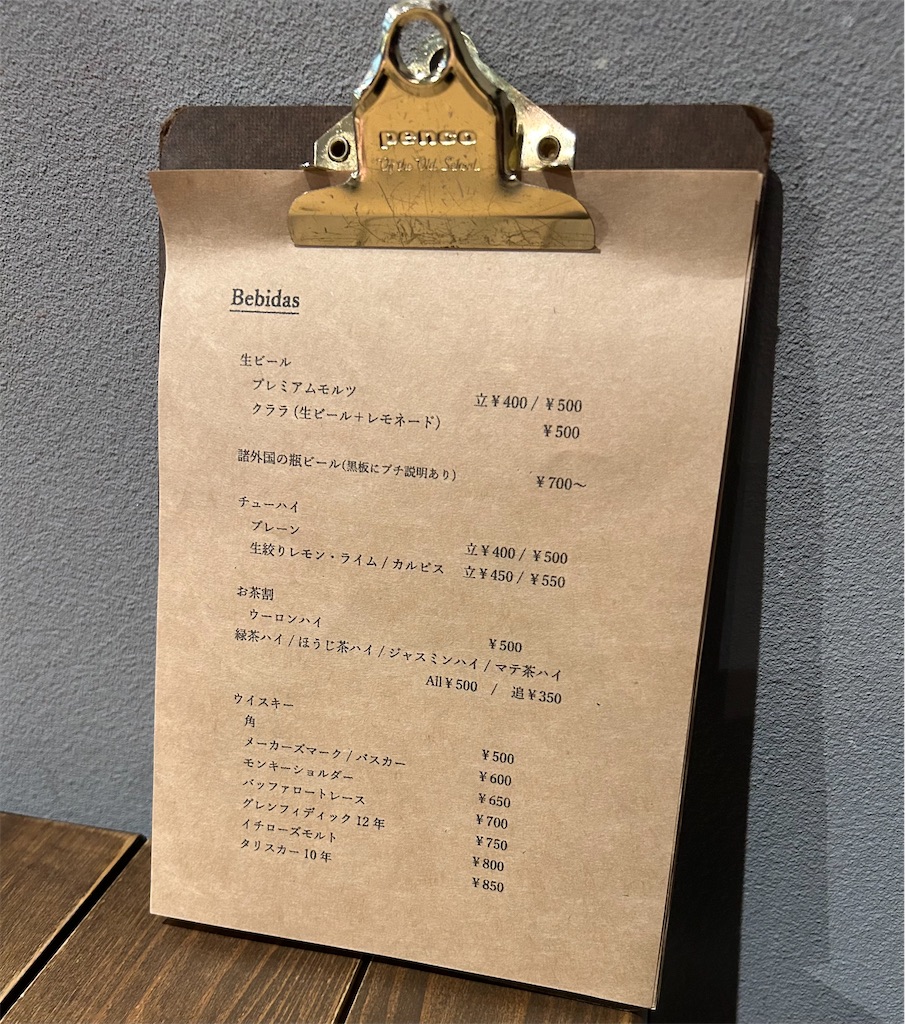 penco
Of the Old School
Bebidas
生ビール
プレミアムモルツ 立¥400 / ¥500
クララ (生ビール+レモネード) ¥500
諸外国の瓶ビール(黒板にプチ説明あり) ¥700〜
チューハイ
プレーン 立¥400 / ¥500
生絞りレモン・ライム / カルピス 立¥450 / ¥550
お茶割
ウーロンハイ ¥500
緑茶ハイ / ほうじ茶ハイ / ジャスミンハイ / マテ茶ハイ
All¥500 / 追¥350
ウイスキー
角 ¥500
メーカーズマーク / バスカー ¥600
モンキーショルダー ¥650
バッファロートレース ¥700
グレンフィディック 12 年 ¥750
イチローズモルト ¥800
タリスカー 10 年 ¥850